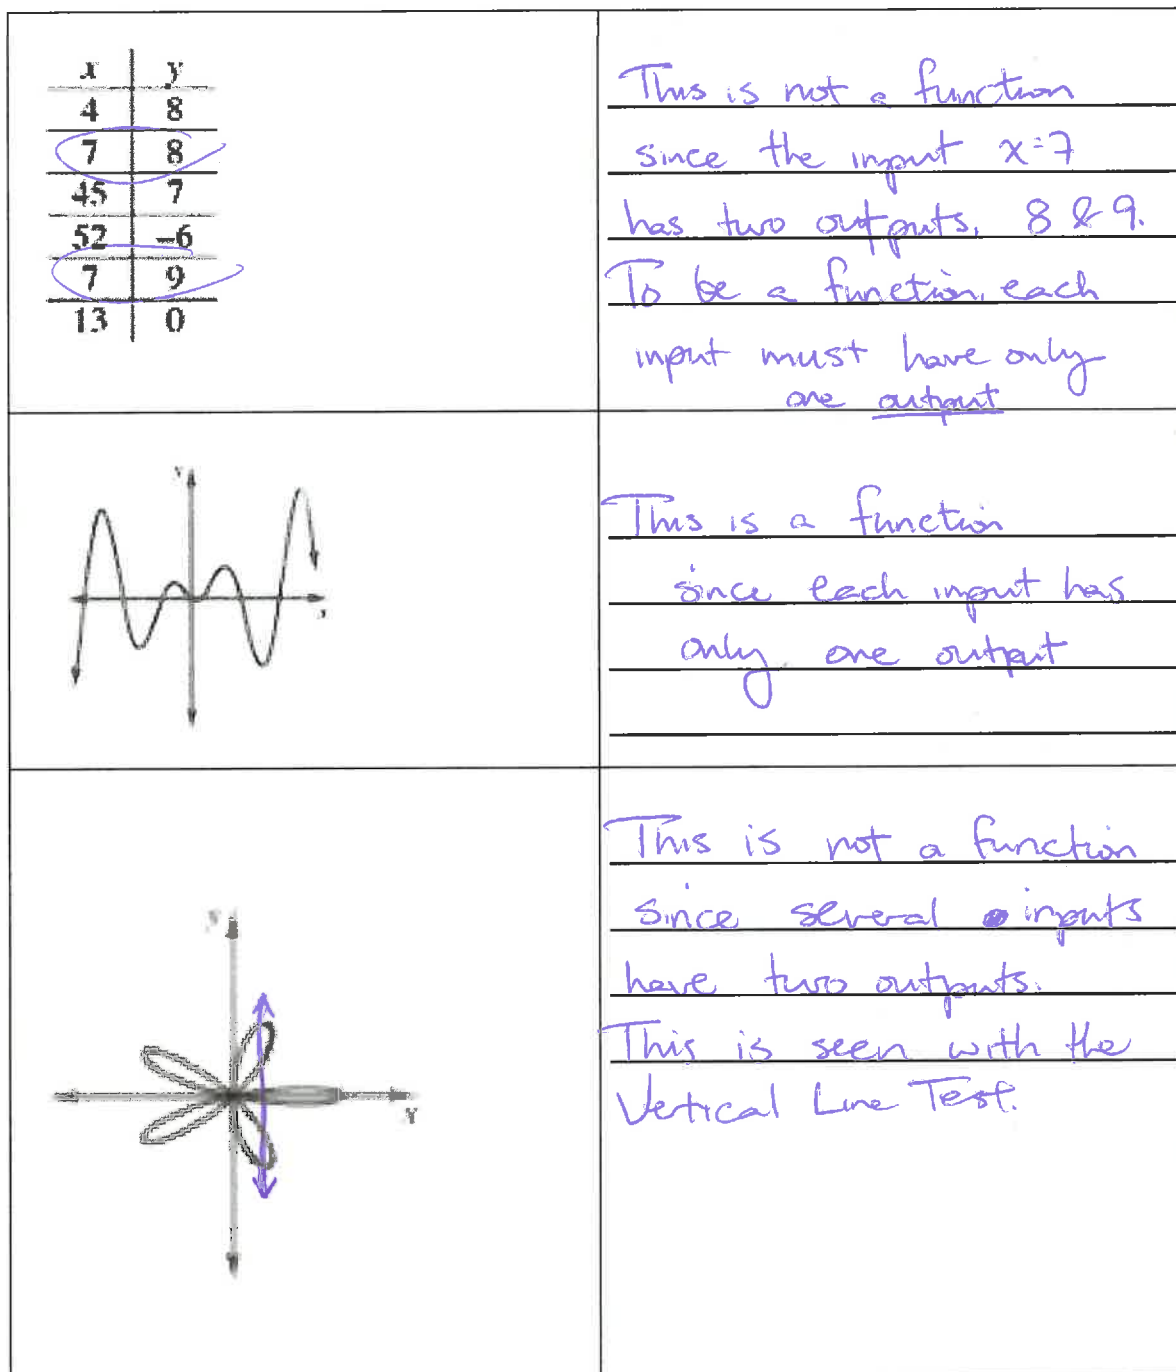 x y
4 8
7 8
45 7
52 -6
7 9
13 0
This is not a function
since the input x=7
has two outputs, 8 & 9.
To be a function, each
input must have only
one output
y
x
This is a function
since each input has
only one output
y
x
This is not a function
since several inputs
have two outputs.
This is seen with the
Vertical Line Test.